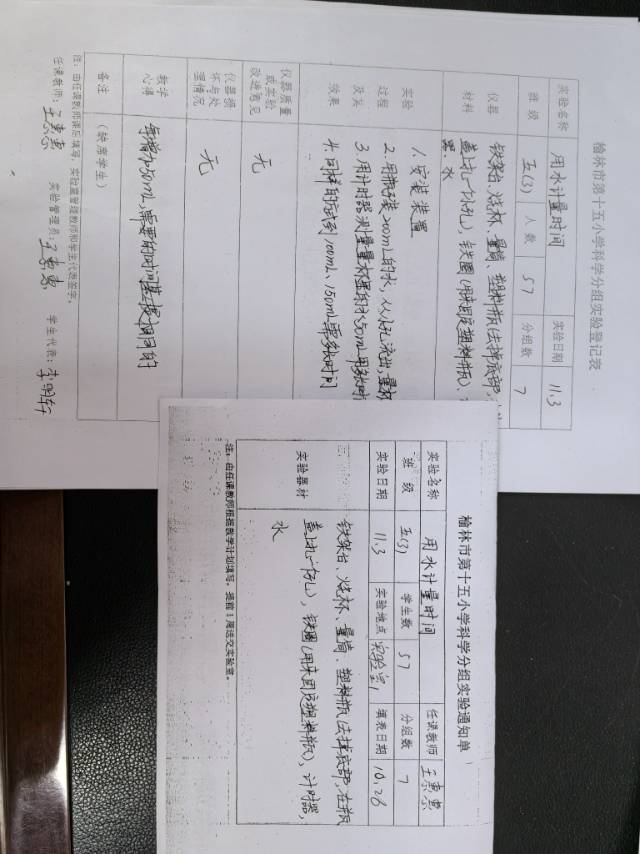 榆林市第十五小学科学分组实验登记表
实验名称 用水计量时间 实验日期 11.3
班级 五(3) 人数 57 分组数 7
仪器 铁架台、烧杯、量筒、塑料瓶(去掉底部,
材料 盖上扎一个小孔),铁圈(用来固定塑料瓶),
器,水
实验 1、安装装置
过程 2、用瓶子装200ml的水,从小孔流出,量杯
及其 3、用计时器测量量杯里的水50ml用多长时
效果 4、同样的方式到100ml、150ml需多长时间
仪器质量
或实验
改进意见 无
仪器损
坏与处
理情况 无
教学
心得 每增加50ml,需要的时间是相同的
备注 (缺席学生)
注:由任课教师课后填写,实验室管理教师和学生代表签字。
任课教师:王惠惠 实验管理员:王惠惠 学生代表:李明轩
榆林市第十五小学科学分组实验通知单
实验名称 用水计量时间 任课教师 王惠惠
班级 五(3) 学生数 57 分组数 7
实验日期 11.3 实验地点 实验室1 填表日期 10.26
实验器材 铁架台、烧杯、量筒、塑料瓶(去掉底部,在瓶
盖上扎一个小孔),铁圈(用来固定塑料瓶),计时器,
水
注:由任课教师根据教学计划填写,提前1周送交实验室。